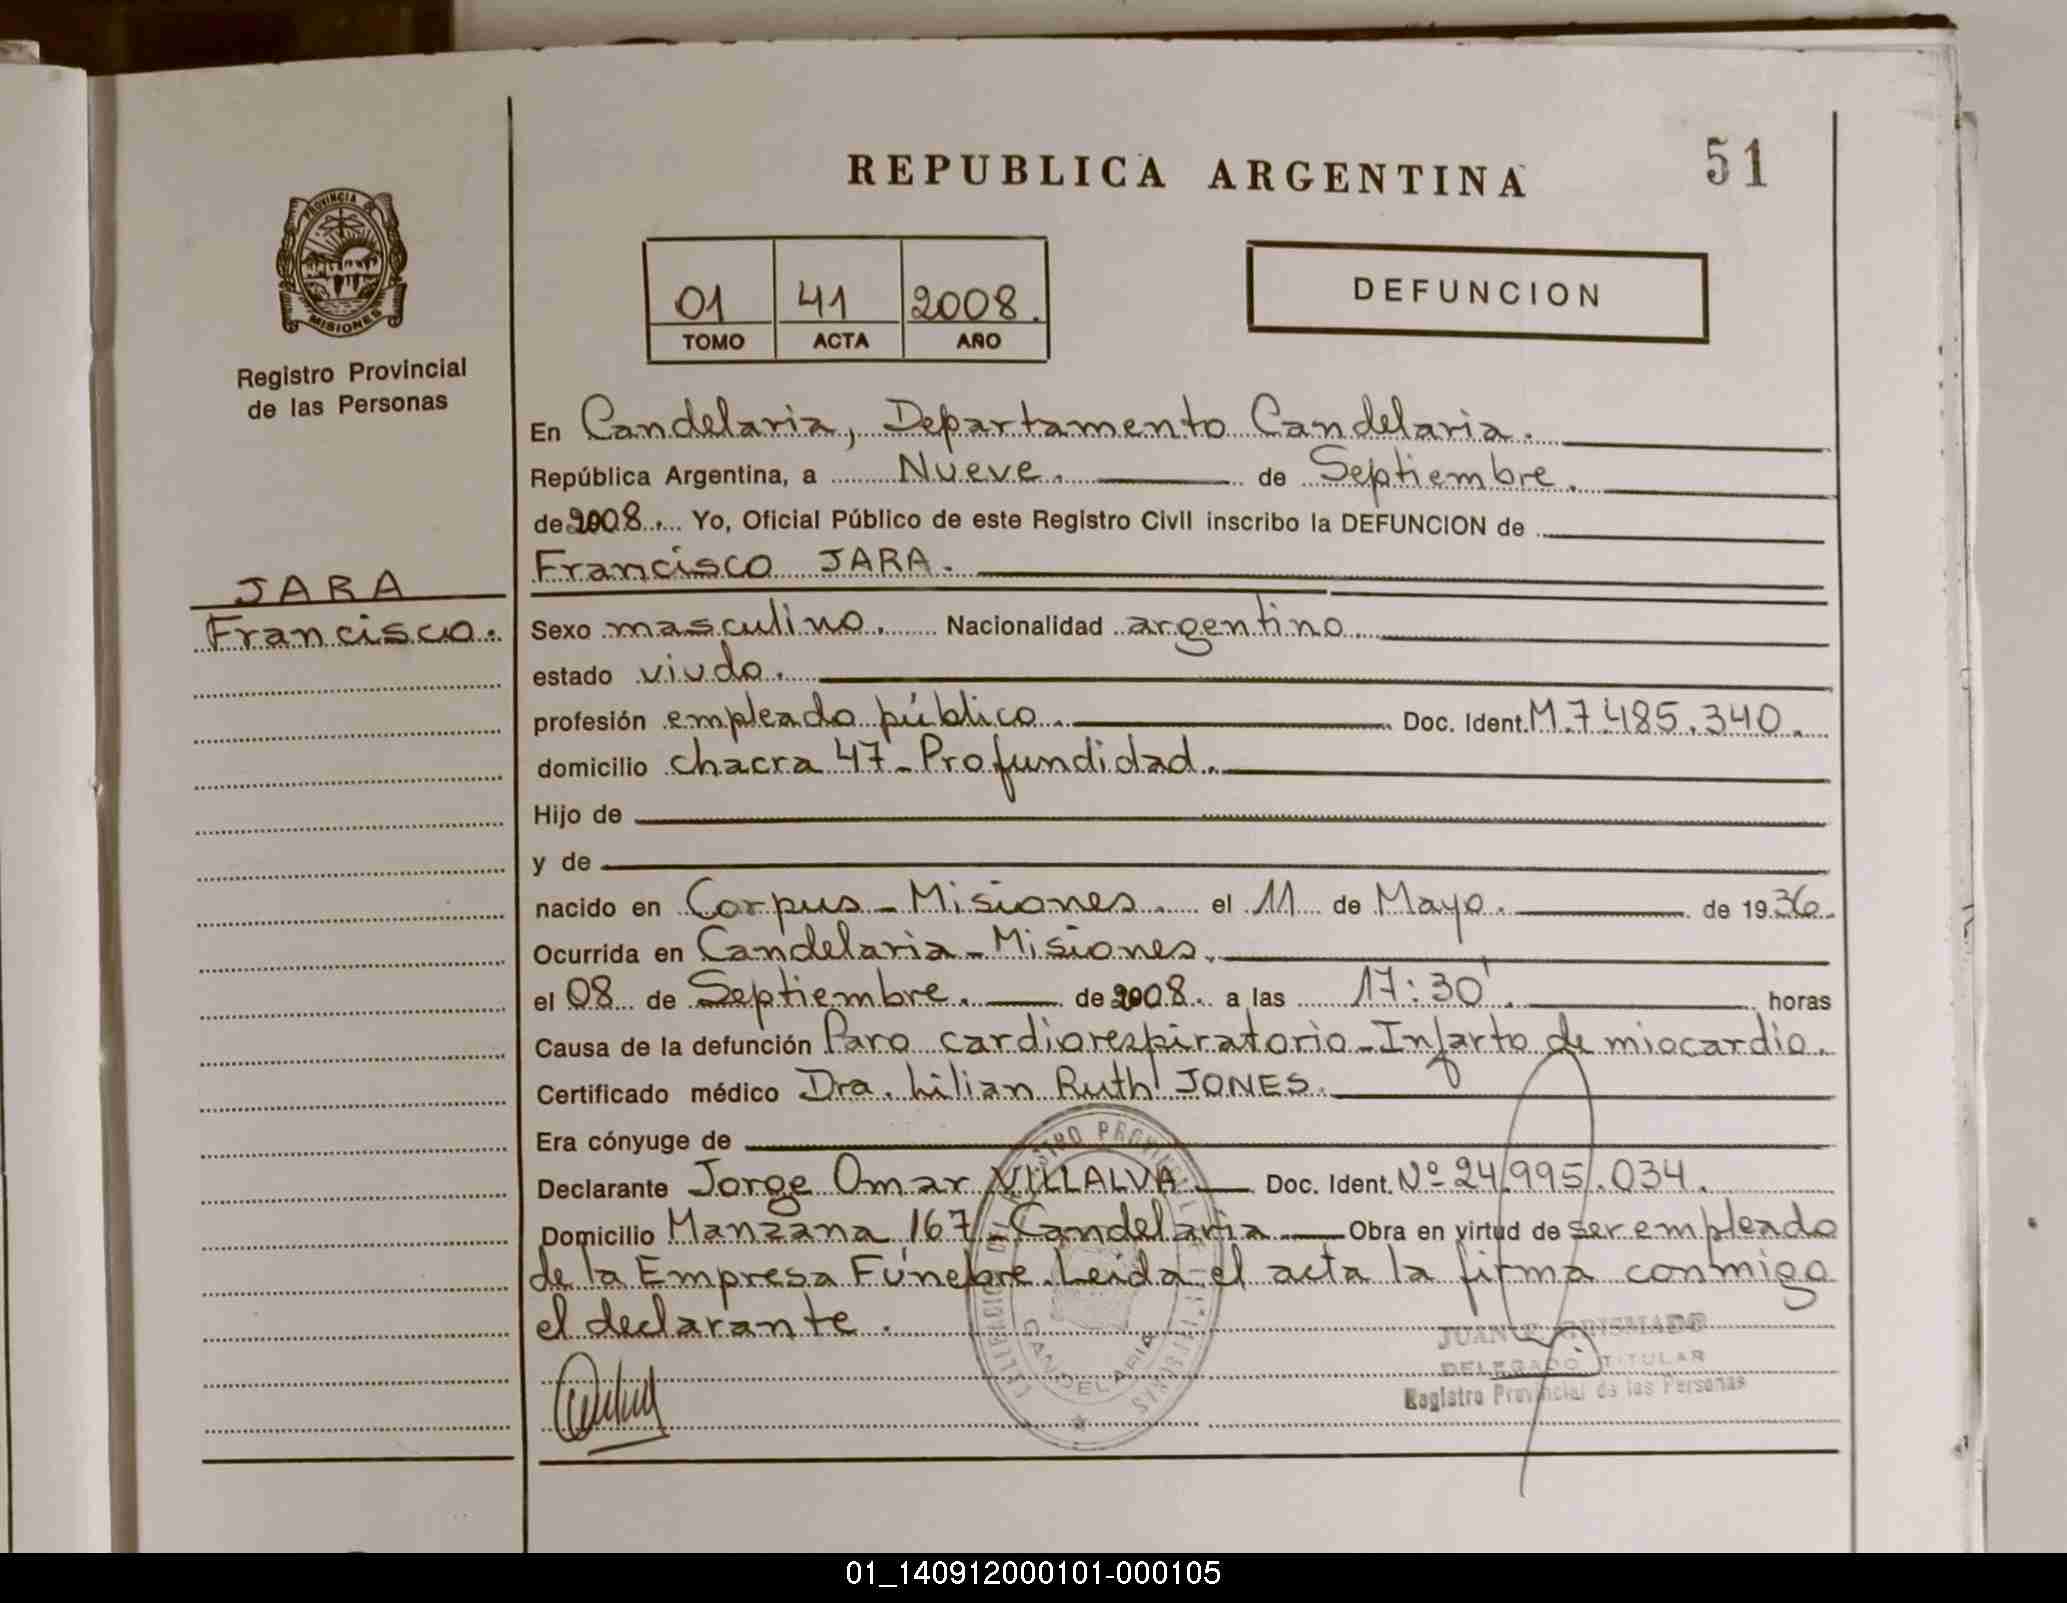 REPUBLICA ARGENTINA
51
PROVINCIA DE
MISIONES
Registro Provincial
de las Personas
01 41 2008.
TOMO ACTA AÑO
DEFUNCION
En Candelaria, Departamento Candelaria.
República Argentina, a Nueve. de Septiembre.
de 2008. Yo, Oficial Público de este Registro Civil inscribo la DEFUNCION de
Francisco JARA.
JARA
Francisco.
Sexo masculino. Nacionalidad argentino
estado viudo.
profesión empleado público. Doc. Ident. M.7.485.340.
domicilio chacra 47-Profundidad.
Hijo de
y de
nacido en Corpus-Misiones. el 11 de Mayo. de 1936.
Ocurrida en Candelaria-Misiones.
el 08 de Septiembre. de 2008. a las 17:30'. horas
Causa de la defunción Paro cardiorespiratorio-Infarto de miocardio.
Certificado médico Dra. Lilian Ruth JONES.
Era cónyuge de
Declarante Jorge Omar VILLALVA Doc. Ident. Nº 24.995.034.
Domicilio Manzana 167-Candelaria Obra en virtud de ser empleado
de la Empresa Fúnebre. Leída el acta la firma conmigo
el declarante.
CANDELARIA
JUAN
DELEGADO TITULAR
Registro Provincial de las Personas
01_140912000101-000105